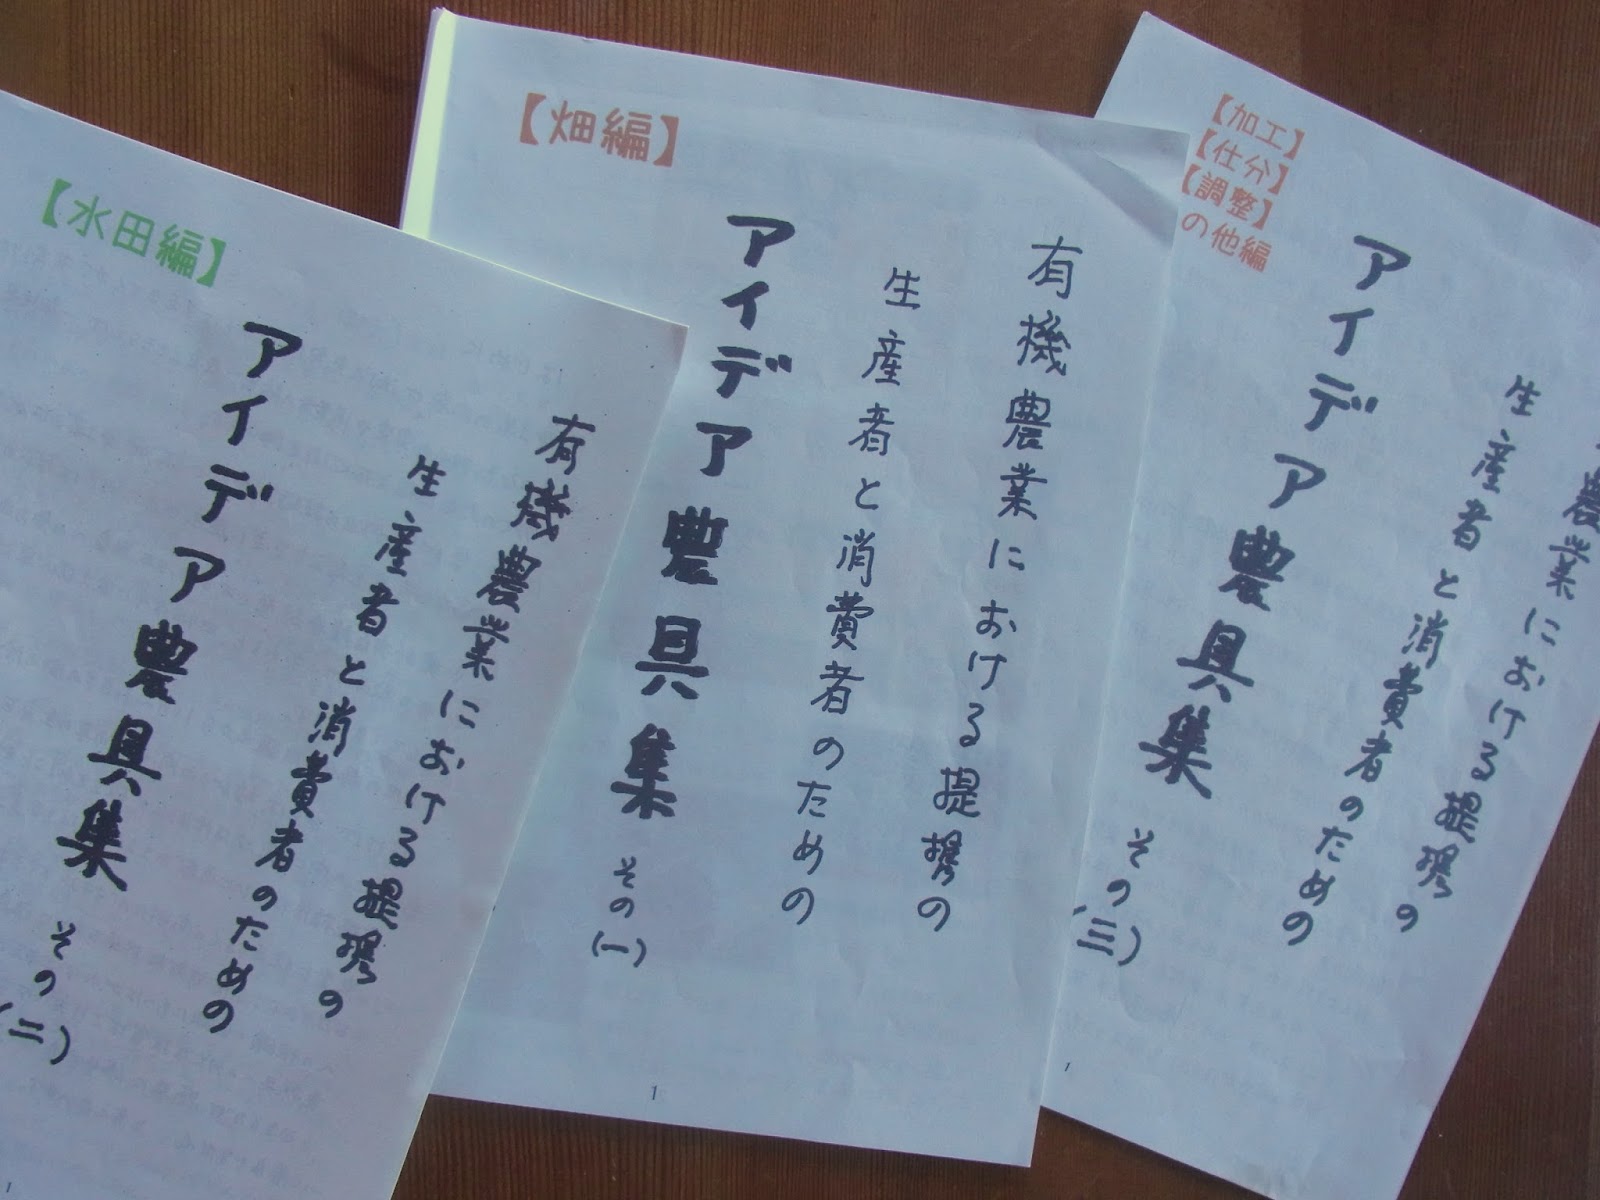 【水田編】
有機農業における提携の
生産者と消費者のための
アイデア農具集 その(二)
1
【畑編】
有機農業における提携の
生産者と消費者のための
アイデア農具集 その(一)
1
【加工】
【仕分】
【調整】
の他編
農業における提携の
生産者と消費者のための
アイデア農具集 その(三)
1